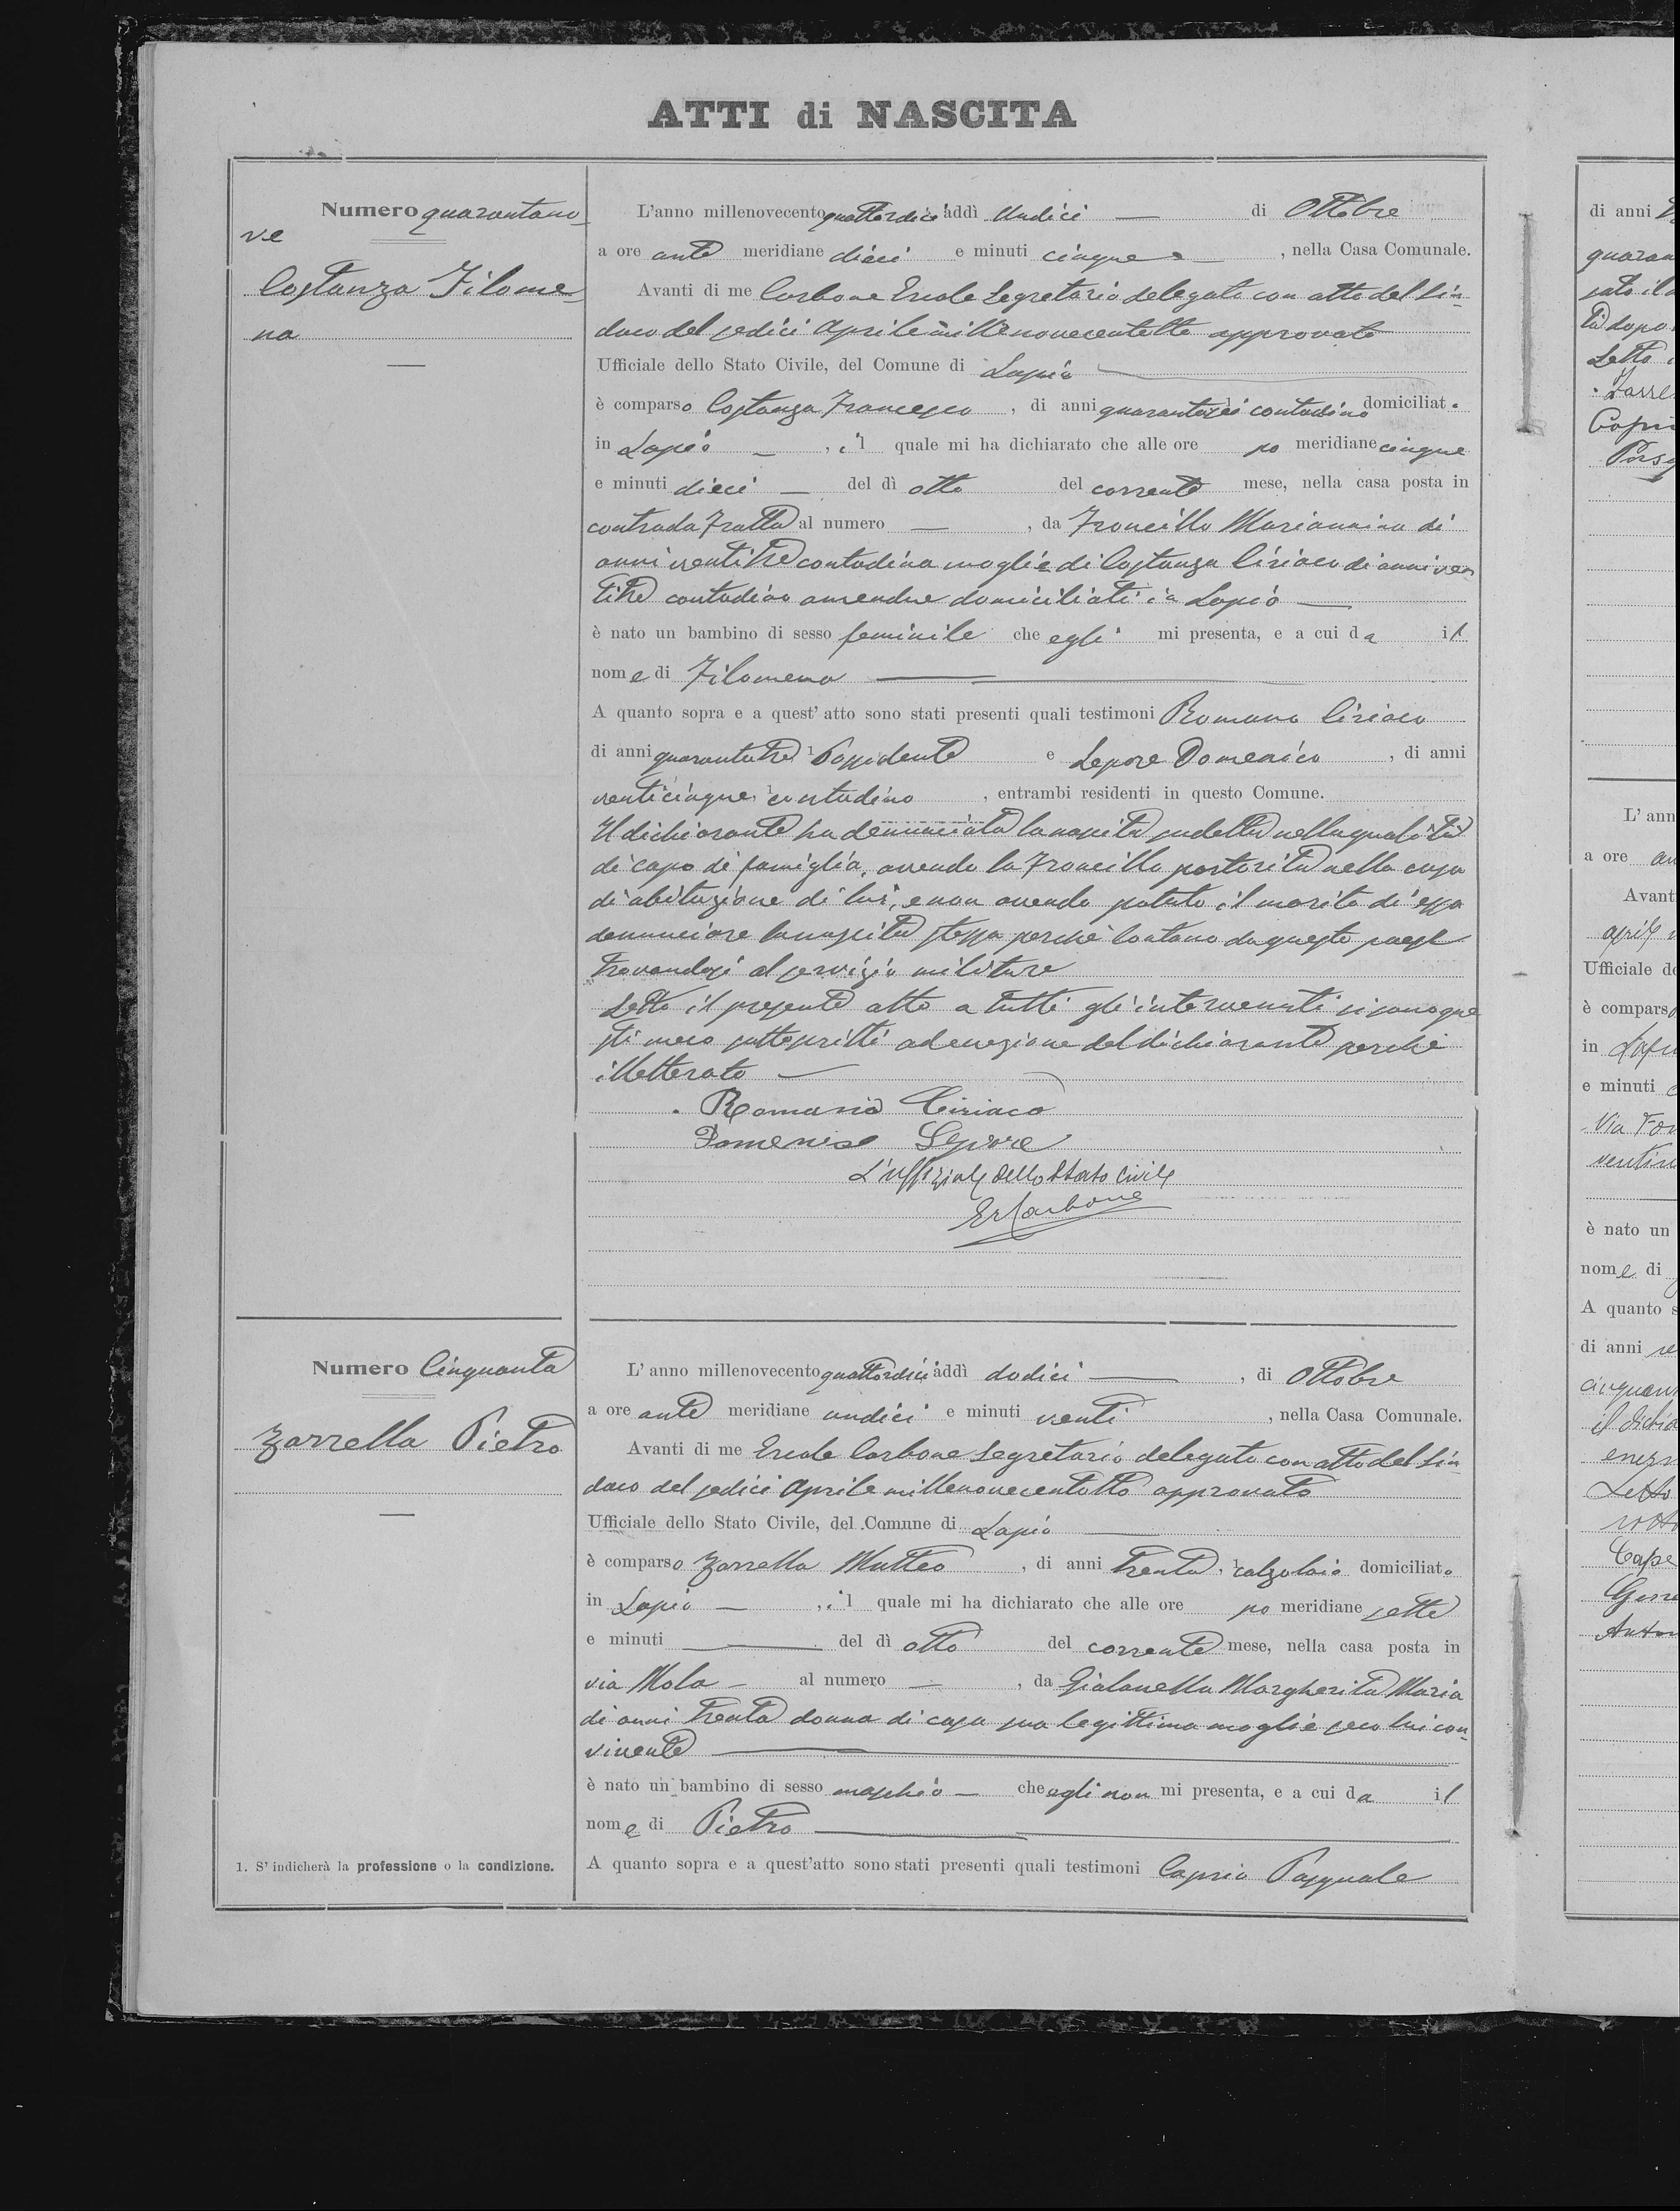 ATTI di NASCITA
Numero quarantano-
ve
Costanza Filome-
na
L'anno millenovecento quattordici addì Undici — di Ottobre
a ore ante meridiane dieci e minuti cinque —, nella Casa Comunale.
Avanti di me Carbone Ercole Segretario delegato con atto del Sin-
daco del sedici Aprile millenovecentotto approvato
Ufficiale dello Stato Civile, del Comune di Lapio
è comparso Costanza Francesco, di anni quarantasei contadino domiciliato
in Lapio —, il quale mi ha dichiarato che alle ore po meridiane cinque
e minuti dieci — del dì otto del corrente mese, nella casa posta in
contrada Fratta al numero —, da Troncillo Mariannina di
anni ventitre contadina moglie di Costanza Ciriaco di anni ven
titre contadino amendue domiciliati in Lapio —
è nato un bambino di sesso feminile che egli mi presenta, e a cui da il
nome di Filomena —
A quanto sopra e a quest'atto sono stati presenti quali testimoni Romano Ciriaco
di anni quarantatre 1 Possidente e Lepore Domenico, di anni
venticinque, 1 contadino, entrambi residenti in questo Comune.
Il dichiarante ha denunciata la nascita sudetta nella qualità
di capo di famiglia, avendo la Troncillo partorita nella casa
di abitazione di lui, e non avendo potuto il marito di essa
denunciare la nascita stessa perchè lontano da questo paese
trovandosi al servizio militare
Letto il presente atto a tutti gli intervenuti si sono que
sti meco sottoscritti ad eccezione del dichiarante perchè
illetterato —
Romano Ciriaco
Domenico Lepore
L'uffiziale dello Stato Civile
Er Carbone
Numero Cinquanta
Zarrella Pietro
L'anno millenovecento quattordici addì dodici —, di Ottobre
a ore ante meridiane undici e minuti venti, nella Casa Comunale.
Avanti di me Ercole Carbone Segretario delegato con atto del Sin-
daco del sedici Aprile millenovecentotto approvato
Ufficiale dello Stato Civile, del Comune di Lapio —
è comparso Zarrella Matteo, di anni trenta, 1 calzolaio domiciliato
in Lapio —, il quale mi ha dichiarato che alle ore po meridiane sette
e minuti — del dì otto del corrente mese, nella casa posta in
via Mola — al numero —, da Gialanella Margherita Maria
di anni trenta donna di casa sua legittima moglie seco lui con-
vivente —
è nato un bambino di sesso maschio — che egli non mi presenta, e a cui da il
nome di Pietro —
A quanto sopra e a quest'atto sono stati presenti quali testimoni Caprio Pasquale
1. S'indicherà la professione o la condizione.
di anni
Letto
L'ann
a ore
Avant
Ufficiale de
è comparso
in Lapio
e minuti
è nato un
nome di
A quanto s
di anni
Letto